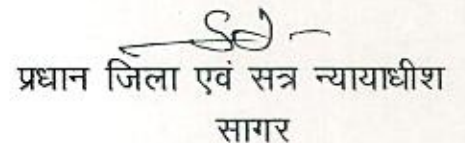 प्रधान जिला एवं सत्र न्यायाधीश
सागर